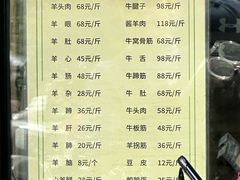 羊头肉 68元/斤 牛腱子 98元/斤
羊眼 68元/斤 酱羊肉 118元/斤
羊肚 68元/斤 牛窝骨筋 68元/斤
羊心 45元/斤 牛舌 98元/斤
羊肠 48元/斤 牛蹄筋 88元/斤
羊杂 28元/斤 牛肚 68元/斤
羊蹄 36元/斤 牛头肉 58元/斤
羊肝 26元/斤 牛板筋 48元/斤
羊肺 20元/斤 羊拐筋 36元/斤
羊脑 8元/个 豆皮 12元/斤